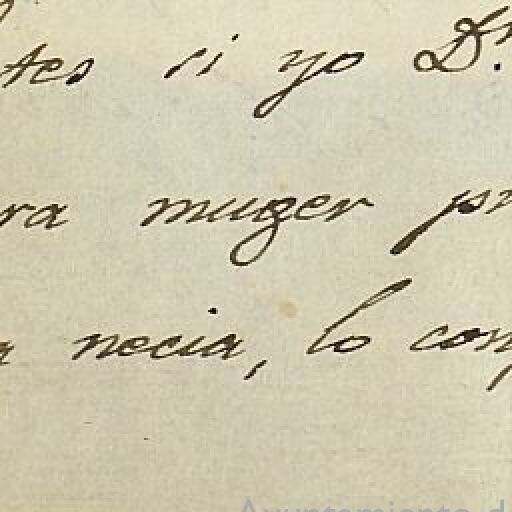 tes si yo D.ⁿ
ra muger pr
a necia, lo conf
Ayuntamiento d